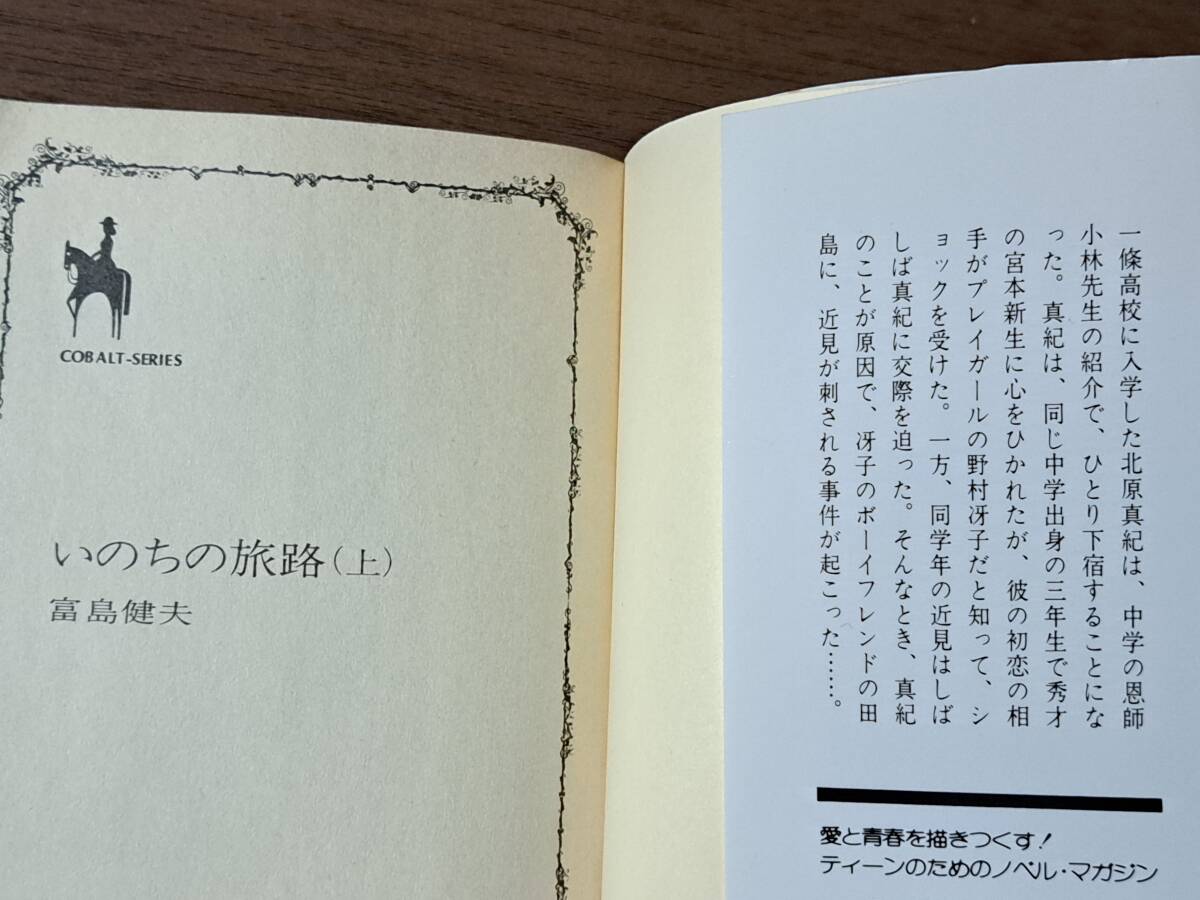 COBALT-SERIES
いのちの旅路(上)
富島健夫
一條高校に入学した北原真紀は、中学の恩師
小林先生の紹介で、ひとり下宿することにな
った。真紀は、同じ中学出身の三年生で秀才
の宮本新生に心をひかれたが、彼の初恋の相
手がプレイガールの野村冴子だと知って、シ
ョックを受けた。一方、同学年の近見はしば
しば真紀に交際を迫った。そんなとき、真紀
のことが原因で、冴子のボーイフレンドの田
島に、近見が刺される事件が起こった……。
愛と青春を描きつくす!
ティーンのためのノベル・マガジン